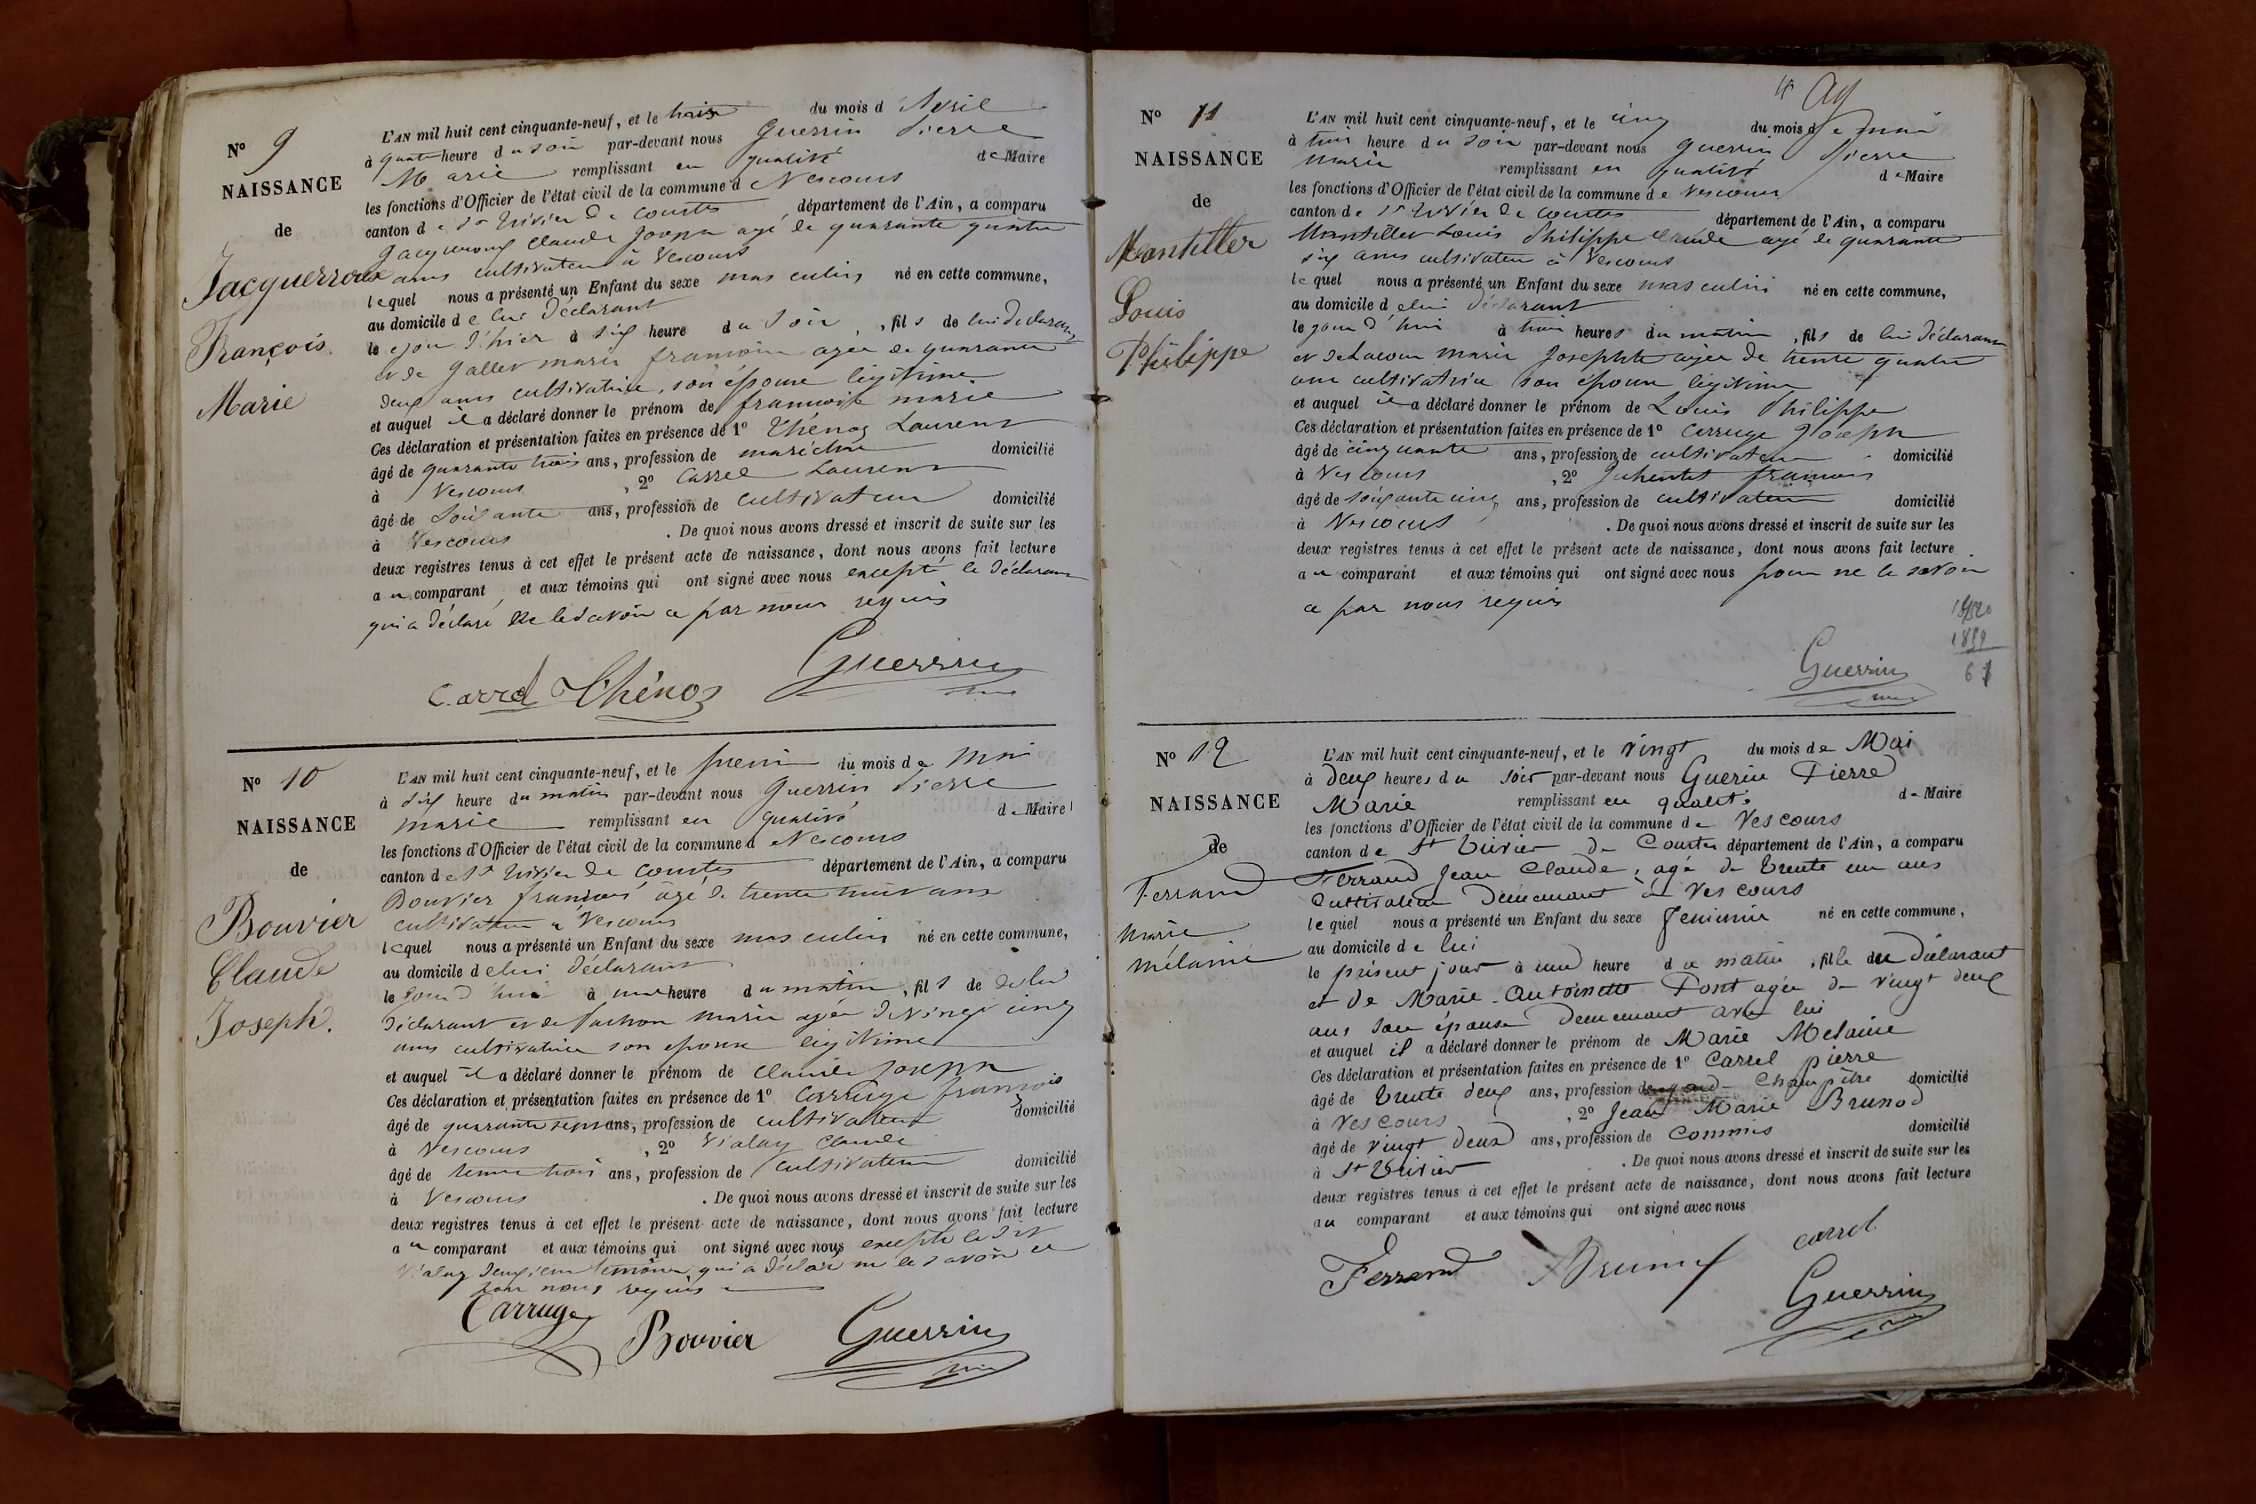 N° 9
NAISSANCE
de
Jacquerroux
François
Marie
L'AN mil huit cent cinquante-neuf, et le trois du mois d'Avril
à quatre heure du soir par-devant nous Guerrin Pierre
Marie remplissant en qualité de Maire
les fonctions d'Officier de l'état civil de la commune d Vescours
canton de St trivier de Courtes département de l'Ain, a comparu
Jacqueroux Claude Joseph agé de quarante quatre
ans cultivateur à Vescours
lequel nous a présenté un Enfant du sexe masculin né en cette commune,
au domicile de lui déclarant
le jour d'hier à six heure du soir, fils de lui déclarant
et de Gallet marie françoise agée de quarante
deux ans cultivatrice, son épouse légitime
et auquel il a déclaré donner le prénom de françois marie
Ces déclaration et présentation faites en présence de 1° Thénoz Laurent
âgé de quarante trois ans, profession de maréchal domicilié
à Vescours, 2° Carrel Laurent
âgé de soixante ans, profession de cultivateur domicilié
à Vescours. De quoi nous avons dressé et inscrit de suite sur les
deux registres tenus à cet effet le présent acte de naissance, dont nous avons fait lecture
au comparant, et aux témoins qui ont signé avec nous excepté le déclarant
qui a déclaré ne le savoir a par nous requis
Carrel Thénoz Guerrin
N° 10
NAISSANCE
de
Bouvier
Claude
Joseph.
L'AN mil huit cent cinquante-neuf, et le premier du mois de Mai
à six heure du matin par-devant nous Guerrin Pierre
marie remplissant en qualité de Maire
les fonctions d'Officier de l'état civil de la commune d Vescours
canton de St trivier de Courtes département de l'Ain, a comparu
Bouvier françois âgé de trente trois ans
cultivateur à Vescours
lequel nous a présenté un Enfant du sexe masculin né en cette commune,
au domicile de lui déclarant
le jour d'hui à une heure du matin, fils de de lui
déclarant et de Pachon marie agée de vingt cinq
ans cultivatrice son epouse légitime
et auquel il a déclaré donner le prénom de Claude Joseph
Ces déclaration et présentation faites en présence de 1° Carruge françois
âgé de quarante sept ans, profession de cultivateur domicilié
à Vescours, 2° Vialay Claude
âgé de trente trois ans, profession de cultivateur domicilié
à Vescours. De quoi nous avons dressé et inscrit de suite sur les
deux registres tenus à cet effet le présent acte de naissance, dont nous avons fait lecture
au comparant et aux témoins qui ont signé avec nous excepté le dit
Vialay deuxieme témoin qui a déclaré ne le savoir ce
par nous requis
Carruge Bouvier Guerrin
N° 11
NAISSANCE
de
Mantiller
Louis
Philippe
L'AN mil huit cent cinquante-neuf, et le cinq du mois de mai
à trois heure du soir par-devant nous Guerrin Pierre
Marie remplissant en qualité de Maire
les fonctions d'Officier de l'état civil de la commune de Vescours
canton de St trivier de Courtes département de l'Ain, a comparu
Mantiller Louis Philippe Claude agé de quarante
six ans cultivateur à Vescours
lequel nous a présenté un Enfant du sexe masculin né en cette commune,
au domicile de lui déclarant
le jour d'hui à trois heures du matin, fils de lui déclarant
et de Lacour marie Josephte agée de trente quatre
ans cultivatrice son épouse légitime
et auquel il a déclaré donner le prénom de Louis Philippe
Ces déclaration et présentation faites en présence de 1° Carruge Joseph
âgé de cinquante ans, profession de cultivateur domicilié
à Vescours, 2° françois
âgé de soixante cinq ans, profession de cultivateur domicilié
à Vescours. De quoi nous avons dressé et inscrit de suite sur les
deux registres tenus à cet effet le présent acte de naissance, dont nous avons fait lecture
au comparant et aux témoins qui ont signé avec nous pour ne le savoir
a par nous requis
1920
1859
61
Guerrin
N° 12
NAISSANCE
de
Ferrand
Marie
mélanie
L'AN mil huit cent cinquante-neuf, et le vingt du mois de Mai
à deux heures du soir par-devant nous Guerin Pierre
Marie remplissant en qualité de Maire
les fonctions d'Officier de l'état civil de la commune de Vescours
canton de St Trivier de Courtes département de l'Ain, a comparu
Ferrand Jean Claude, agé de trente un ans
Cultivateur demeurant à Vescours
lequel nous a présenté un Enfant du sexe feminin né en cette commune,
au domicile de lui
le présent jour à une heure du matin, fille du déclarant
et de Marie-Antoinette Pont agée de vingt deux
ans son épouse demeurant avec lui
et auquel il a déclaré donner le prénom de Marie Melanie
Ces déclaration et présentation faites en présence de 1° Carrel pierre
âgé de trente deux ans, profession de garde-Champêtre domicilié
à Vescours, 2° Jean Marie Brunod
âgé de vingt deux ans, profession de Commis domicilié
à St Trivier. De quoi nous avons dressé et inscrit de suite sur les
deux registres tenus à cet effet le présent acte de naissance, dont nous avons fait lecture
au comparant et aux témoins qui ont signé avec nous
Ferrand Brunod carrel
Guerrin